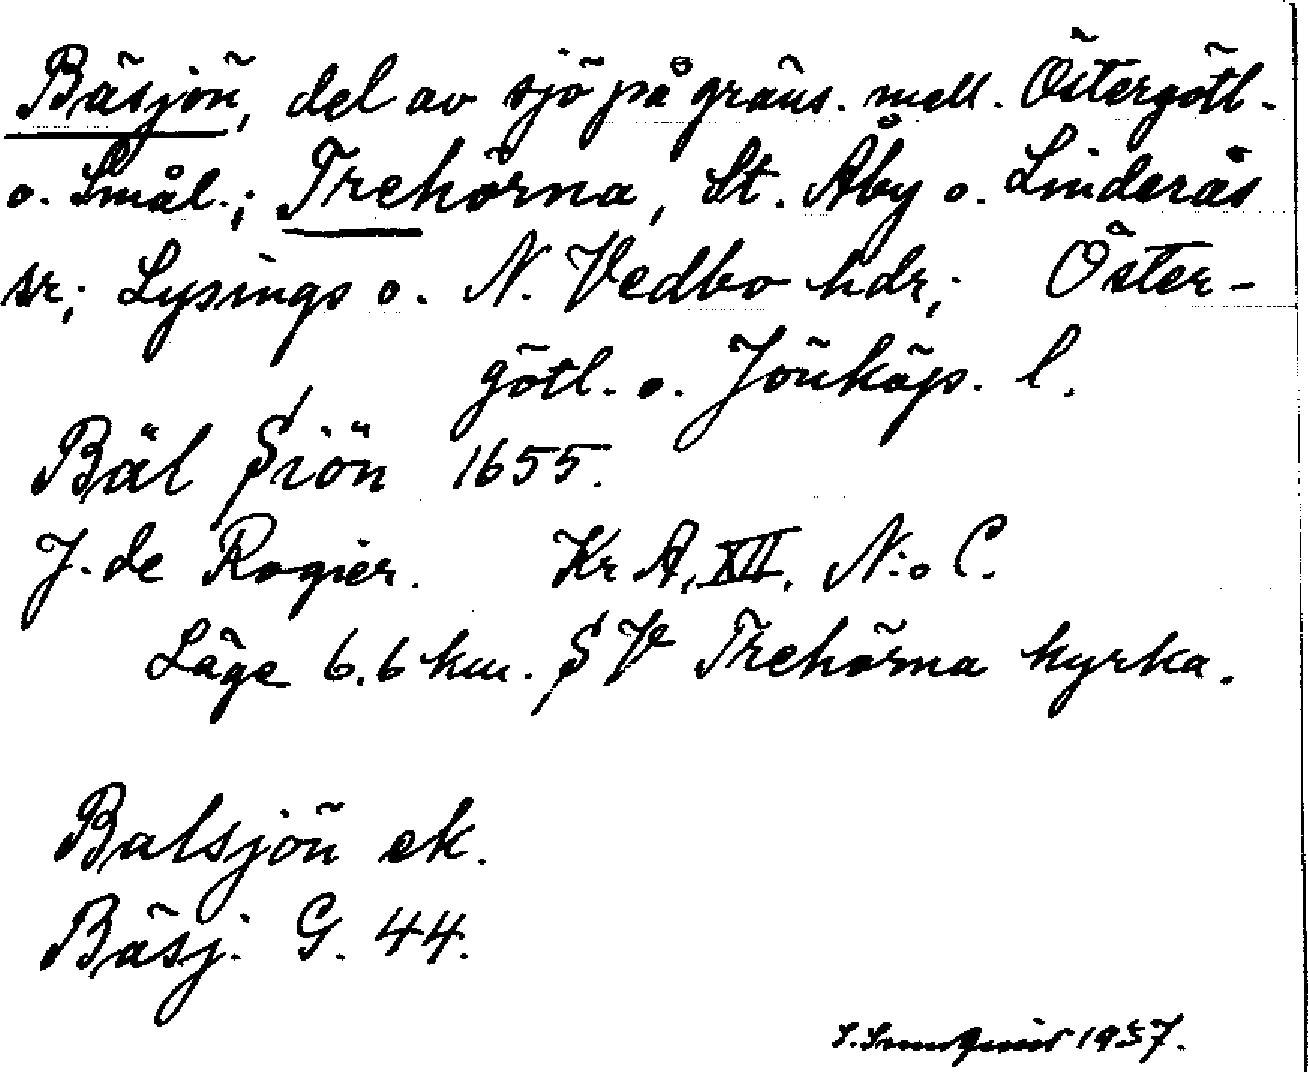 Bäsjön, del av sjö på gräns. mell. Östergötl.
o. Smål.; Trehörna, St. Åby o. Linderås
sr; Lysings o. N. Vedbo hdr; Öster-
götl. o. Jönköp. l.
Bäl Siön 1655.
J. de Rogier. Kr A, XII, N:o C.
Läge 6.6 km. S V Trehörna kyrka.
Balsjön ek.
Bäsj. G. 44.
1957.